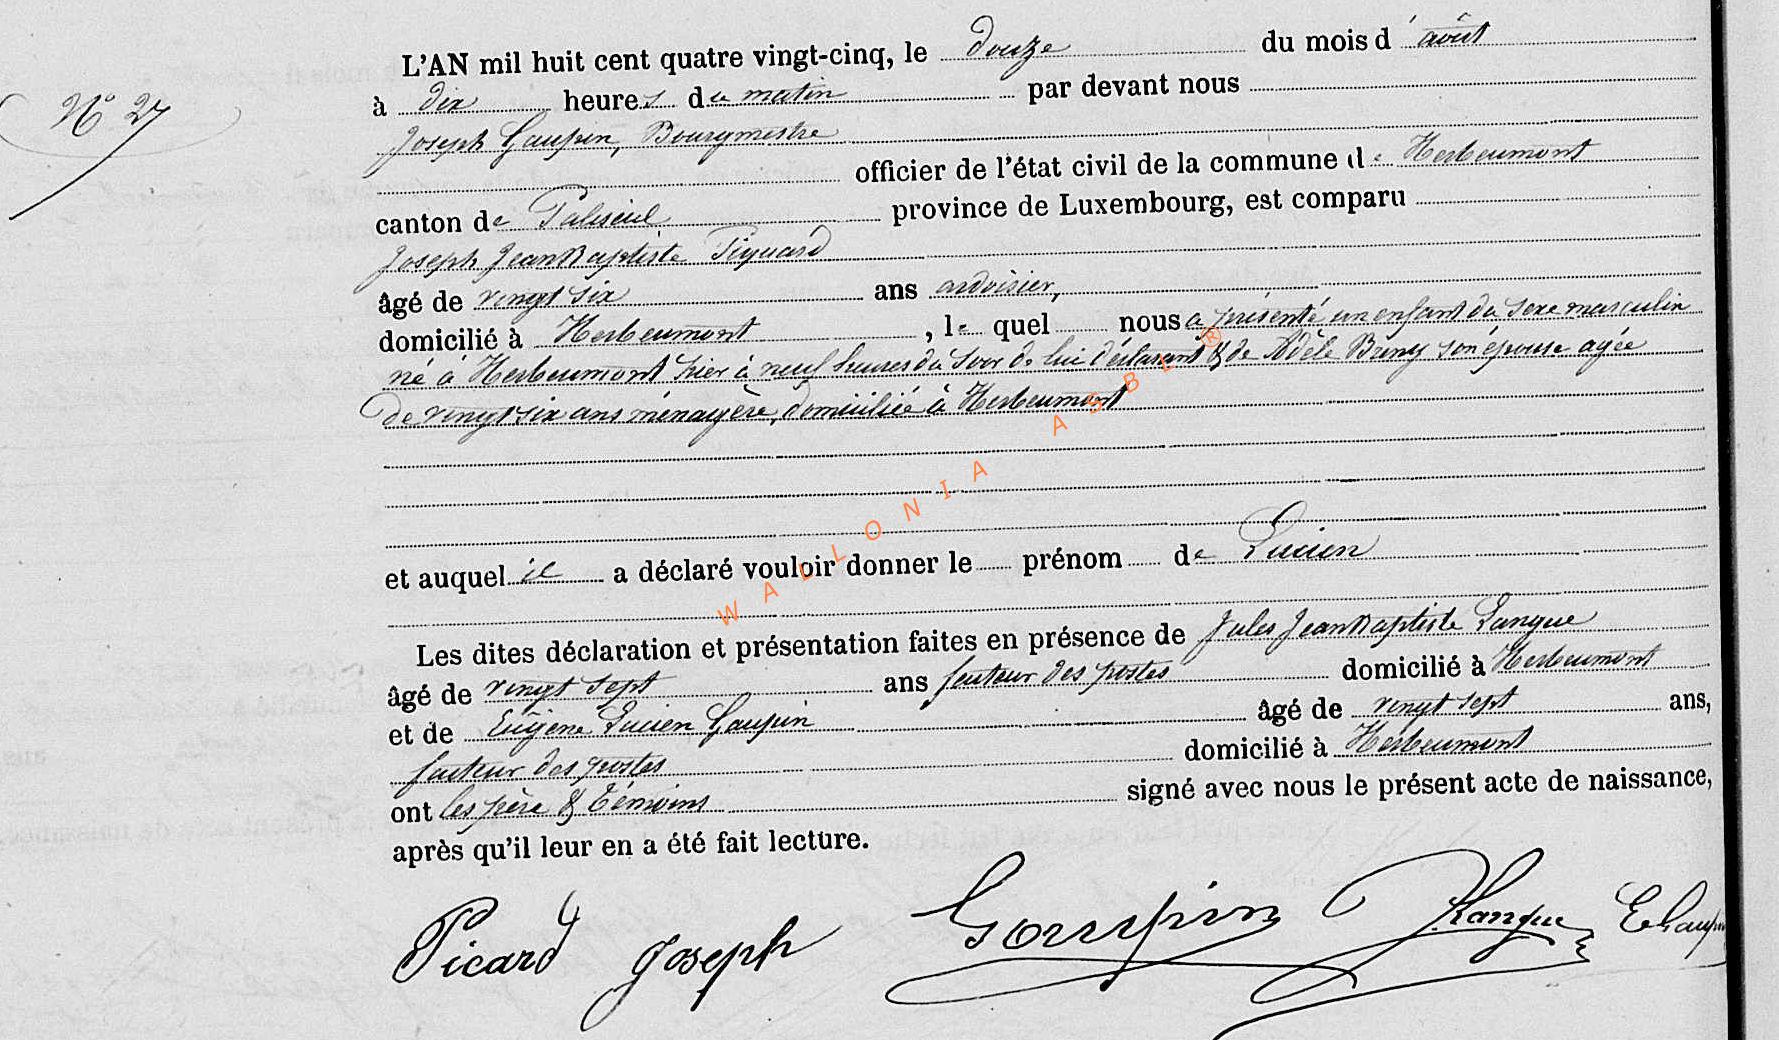 L'AN mil huit cent quatre vingt-cinq, le douze du mois d'août
N° 27
à dix heures du matin par devant nous
Joseph Gaupin, Bourgmestre
officier de l'état civil de la commune de Herbeumont
canton de Paliseul province de Luxembourg, est comparu
Joseph Jean Baptiste Piquard
âgé de vingt six ans ardoisier,
domicilié à Herbeumont, le quel nous a présenté un enfant du sexe masculin
né à Herbeumont hier à neuf heures du soir de lui déclarant & de Adèle Bruny son épouse agée
de vingt six ans ménagère, domiciliée à Herbeumont
WALLONIA ASBL ®
et auquel il a déclaré vouloir donner le prénom de Lucien
Les dites déclaration et présentation faites en présence de Jules Jean Baptiste Langue
âgé de vingt sept ans facteur des postes domicilié à Herbeumont
et de Eugène Lucien Gaupin âgé de vingt sept ans,
facteur des postes domicilié à Herbeumont
ont les père & témoins signé avec nous le présent acte de naissance,
après qu'il leur en a été fait lecture.
Picard Joseph Goupin JLangue EGaupin